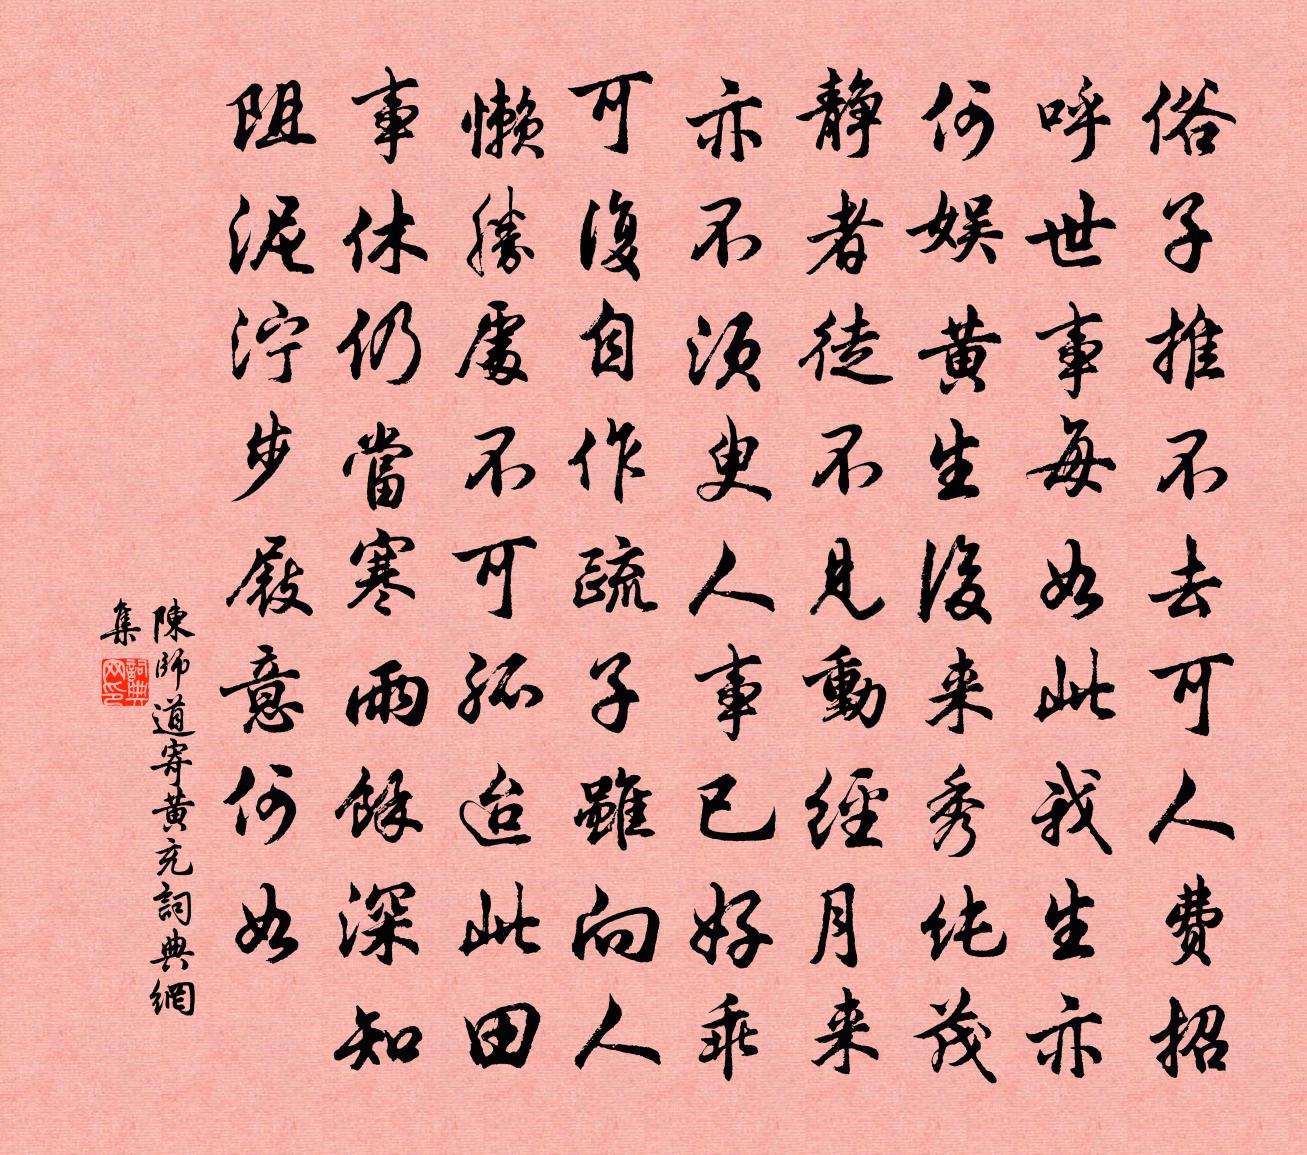 俗子推不去可人費招
呼世事每如此我生亦
何娱黄生後来秀純茂
静者徒不見動經月来
亦不須臾人事已好乖
可復自作疏子雖向人
懶勝處不可孤迨此田
事休仍當寒雨餘深知
阻泥泞步屐意何如
陳師道寄黄充詞典網
集
詞典網印